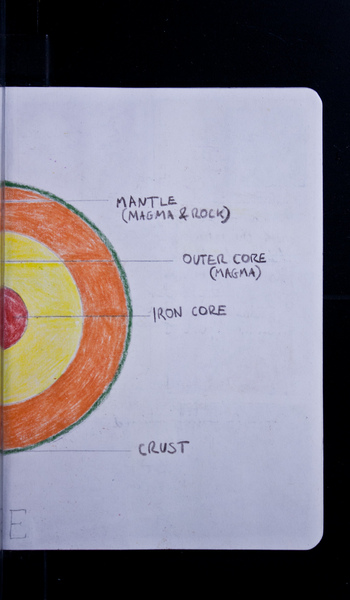 MANTLE
(MAGMA & ROCK)
OUTER CORE
(MAGMA)
IRON CORE
CRUST
E